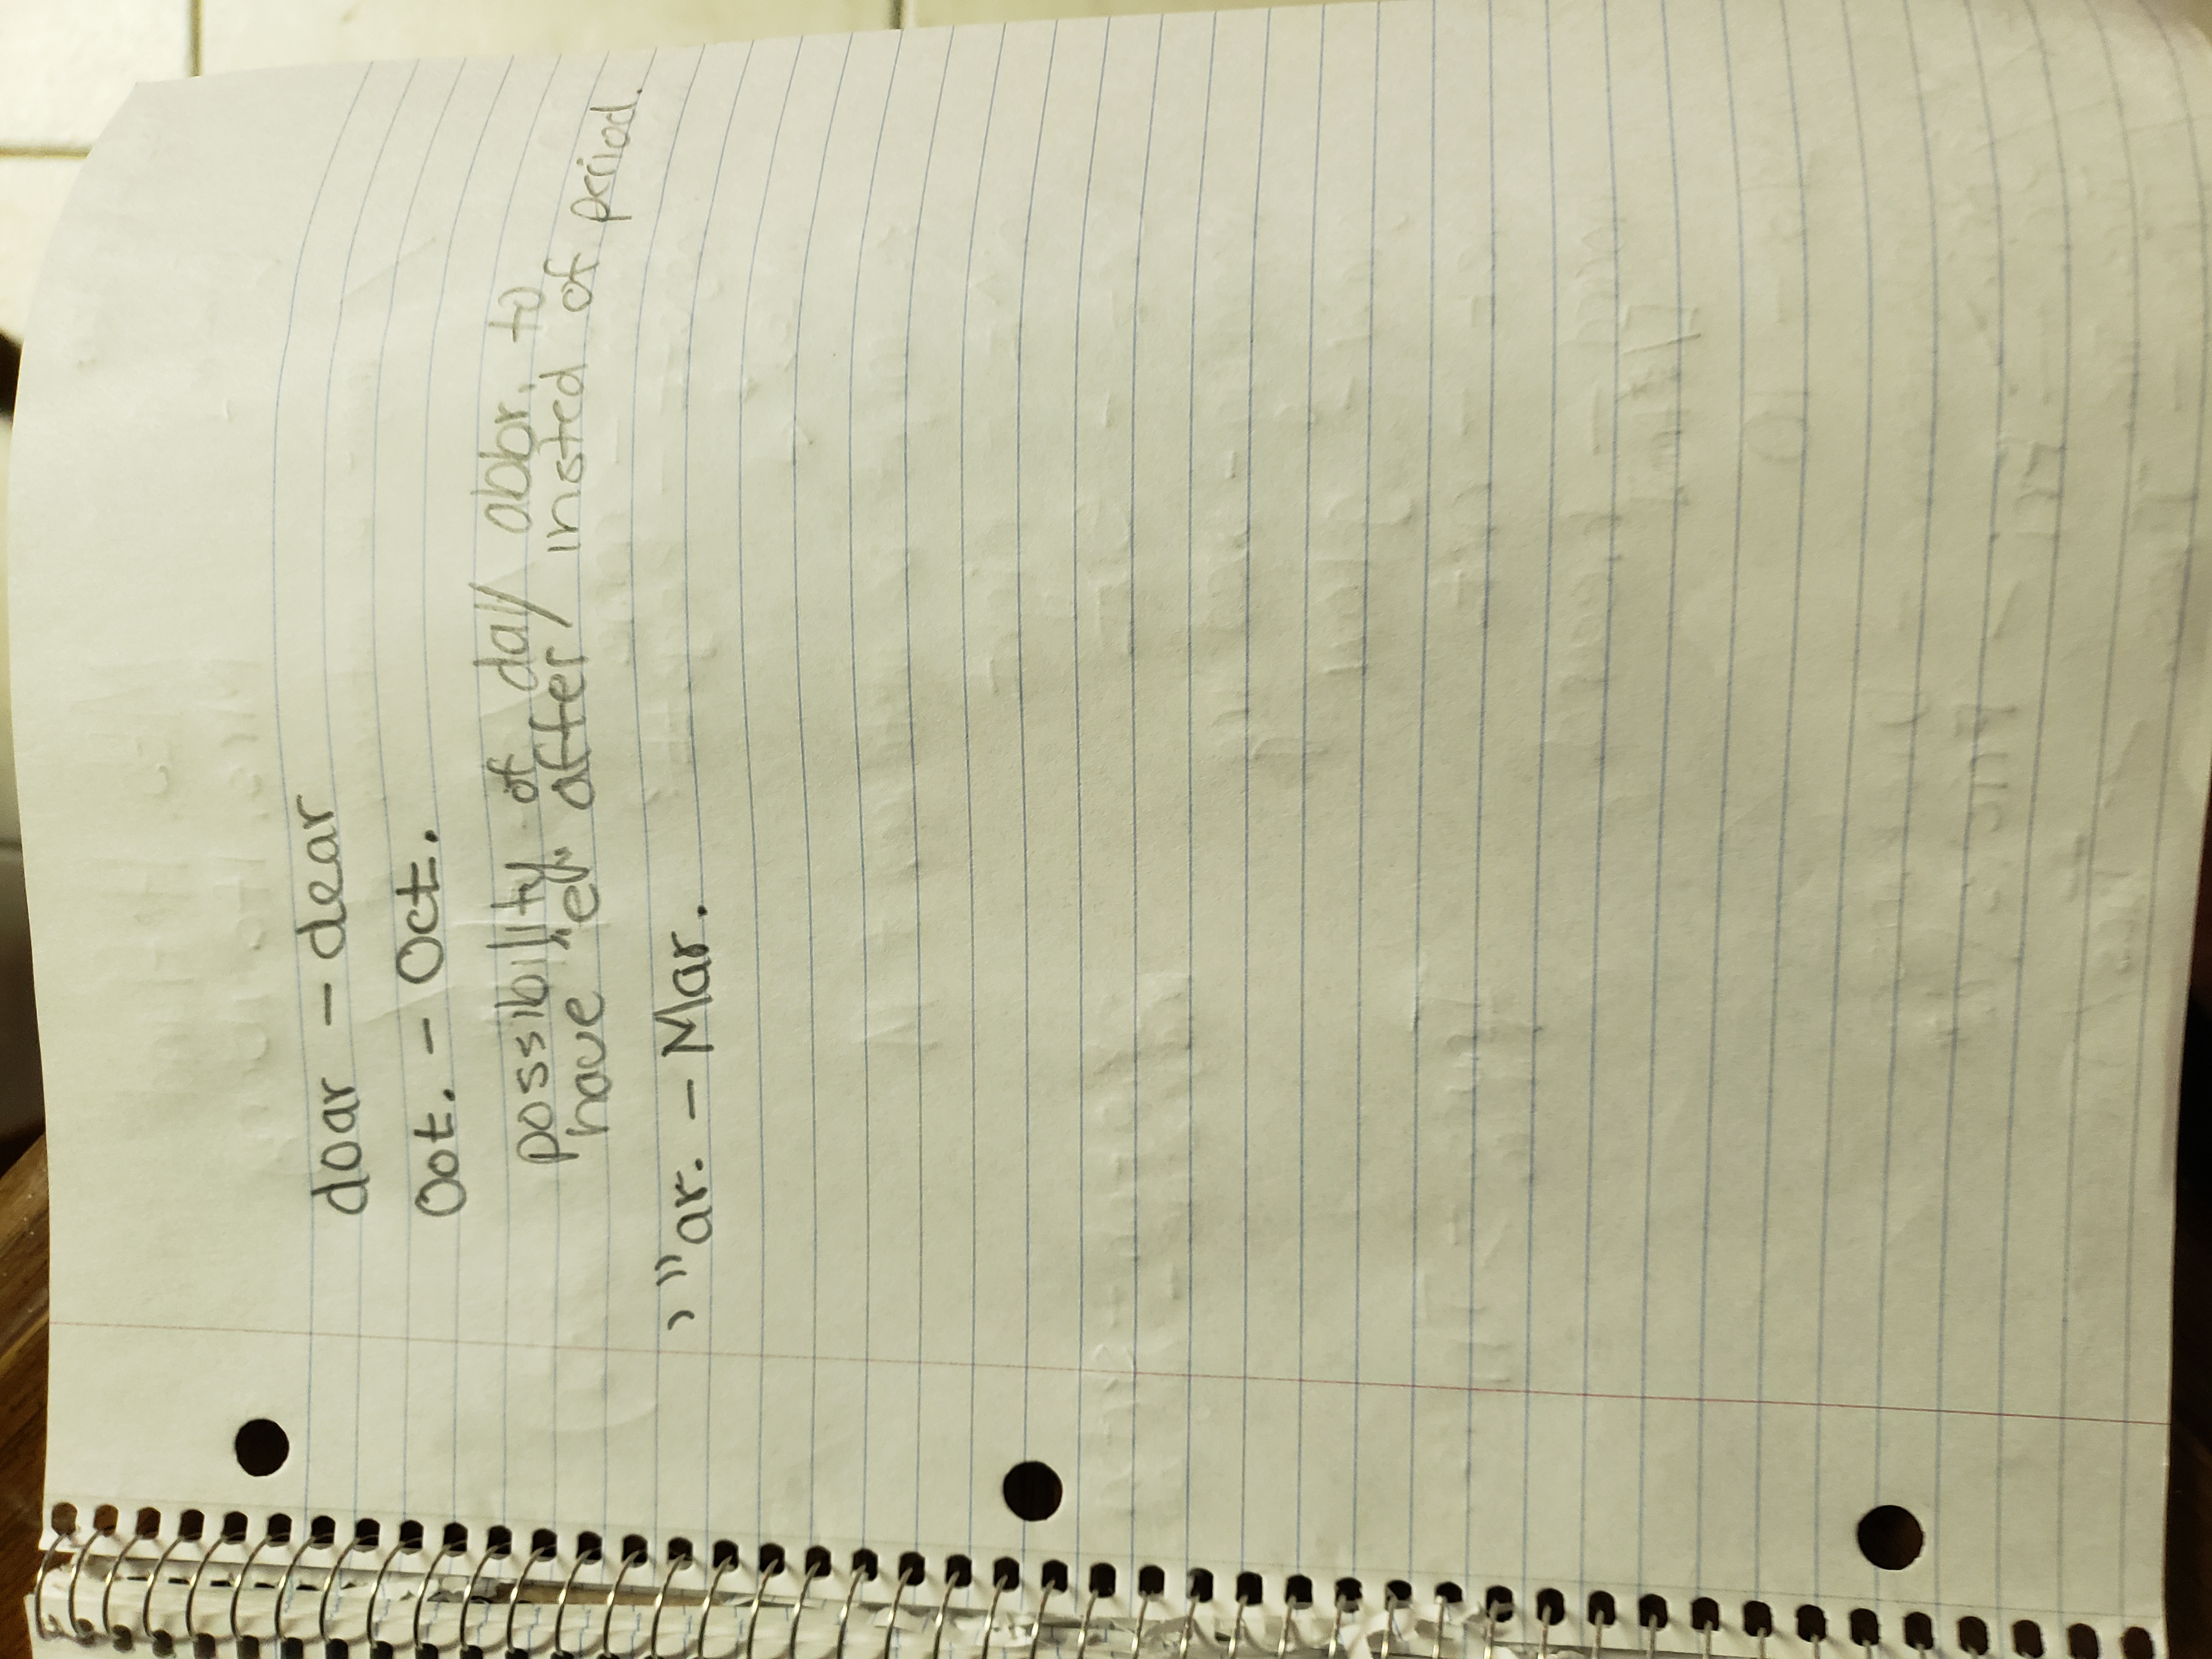 doar - dear
Oot. - Oct.
possibility of day abbr. to
have "er" after insted of period.
› ”ar. - Mar.